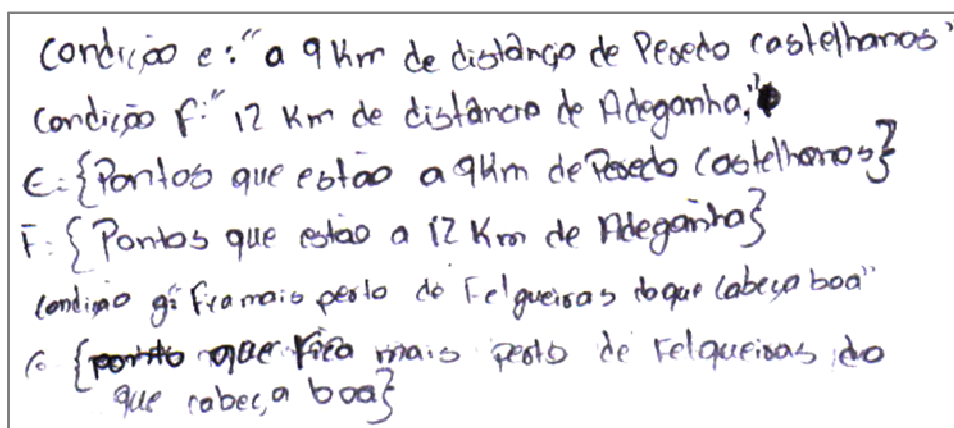 Condição e: "a 9 Km de distância de Peredo Castelhanos"
Condição f: "12 Km de distância de Adeganha,"
E: {Pontos que estão a 9Km de Peredo Castelhanos}
F: {Pontos que estão a 12 Km de Adeganha}
Condição g: Fica mais perto de Felgueiras do que Cabeça boa"
G {ponto que fica mais perto de Felgueiras do
que cabeça boa}